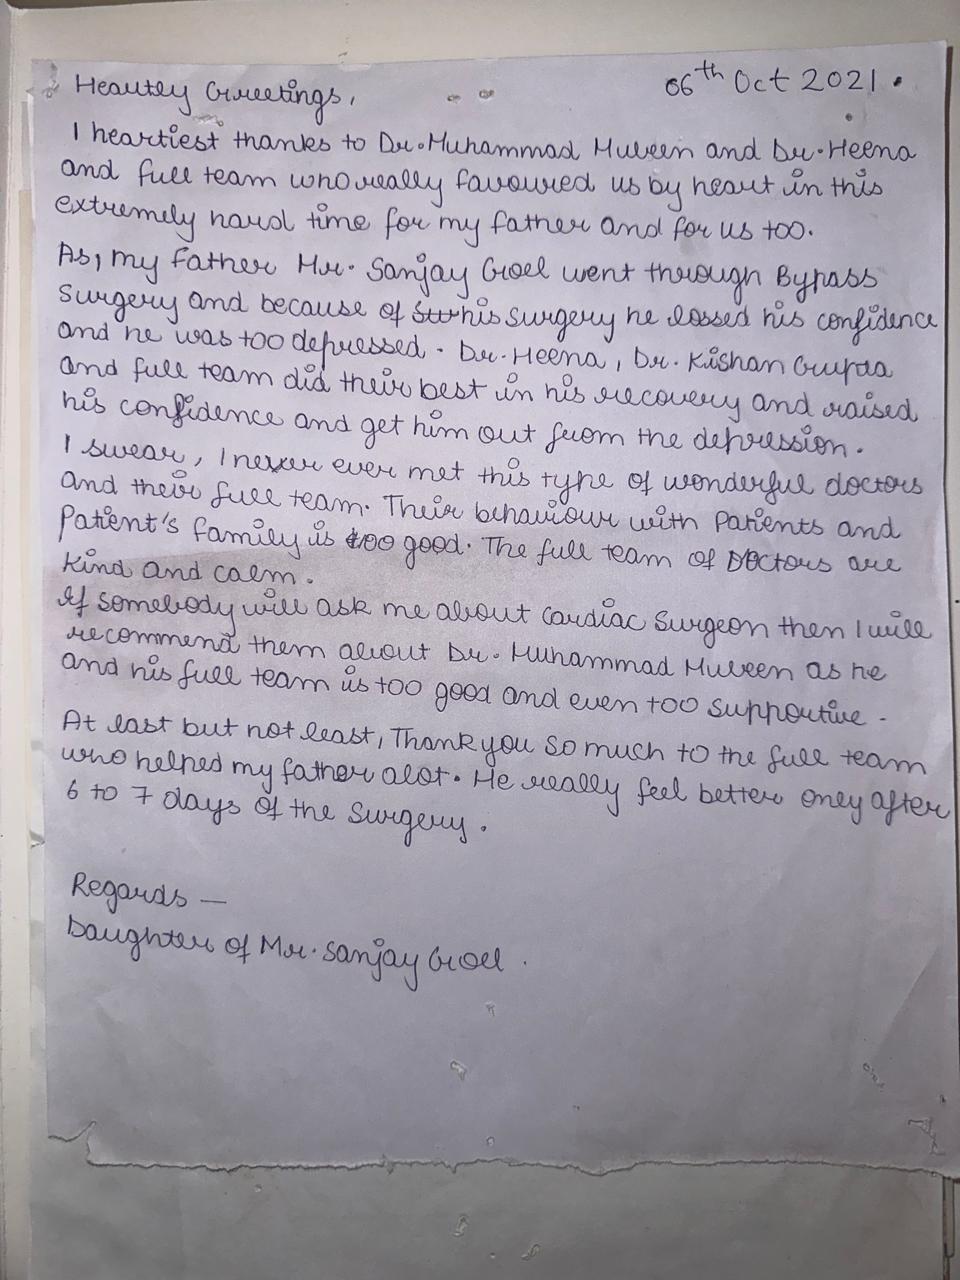 Heartey Greetings,
06th Oct 2021.
I heartiest thanks to Dr. Muhammad Mubeen and Dr. Heena
and full team who really favoured us by heart in this
extremely hard time for my father and for us too.
As, my father Mr. Sanjay Goel went through Bypass
Surgery and because of this surgery he lossed his confidence
and he was too depressed. Dr. Heena, Dr. Kishan Gupta
and full team did their best in his recovery and raised
his confidence and get him out from the depression.
I swear, I never ever met this type of wonderful doctors
and their full team. Their behaviour with Patients and
Patient's family is too good. The full team of Doctors are
kind and calm.
If somebody will ask me about Cardiac Surgeon then I will
recommend them about Dr. Muhammad Mubeen as he
and his full team is too good and even too supportive.
At last but not least, Thank you so much to the full team
who helped my father alot. He really feel better only after
6 to 7 days of the surgery.
Regards —
Daughter of Mr. Sanjay Goel.